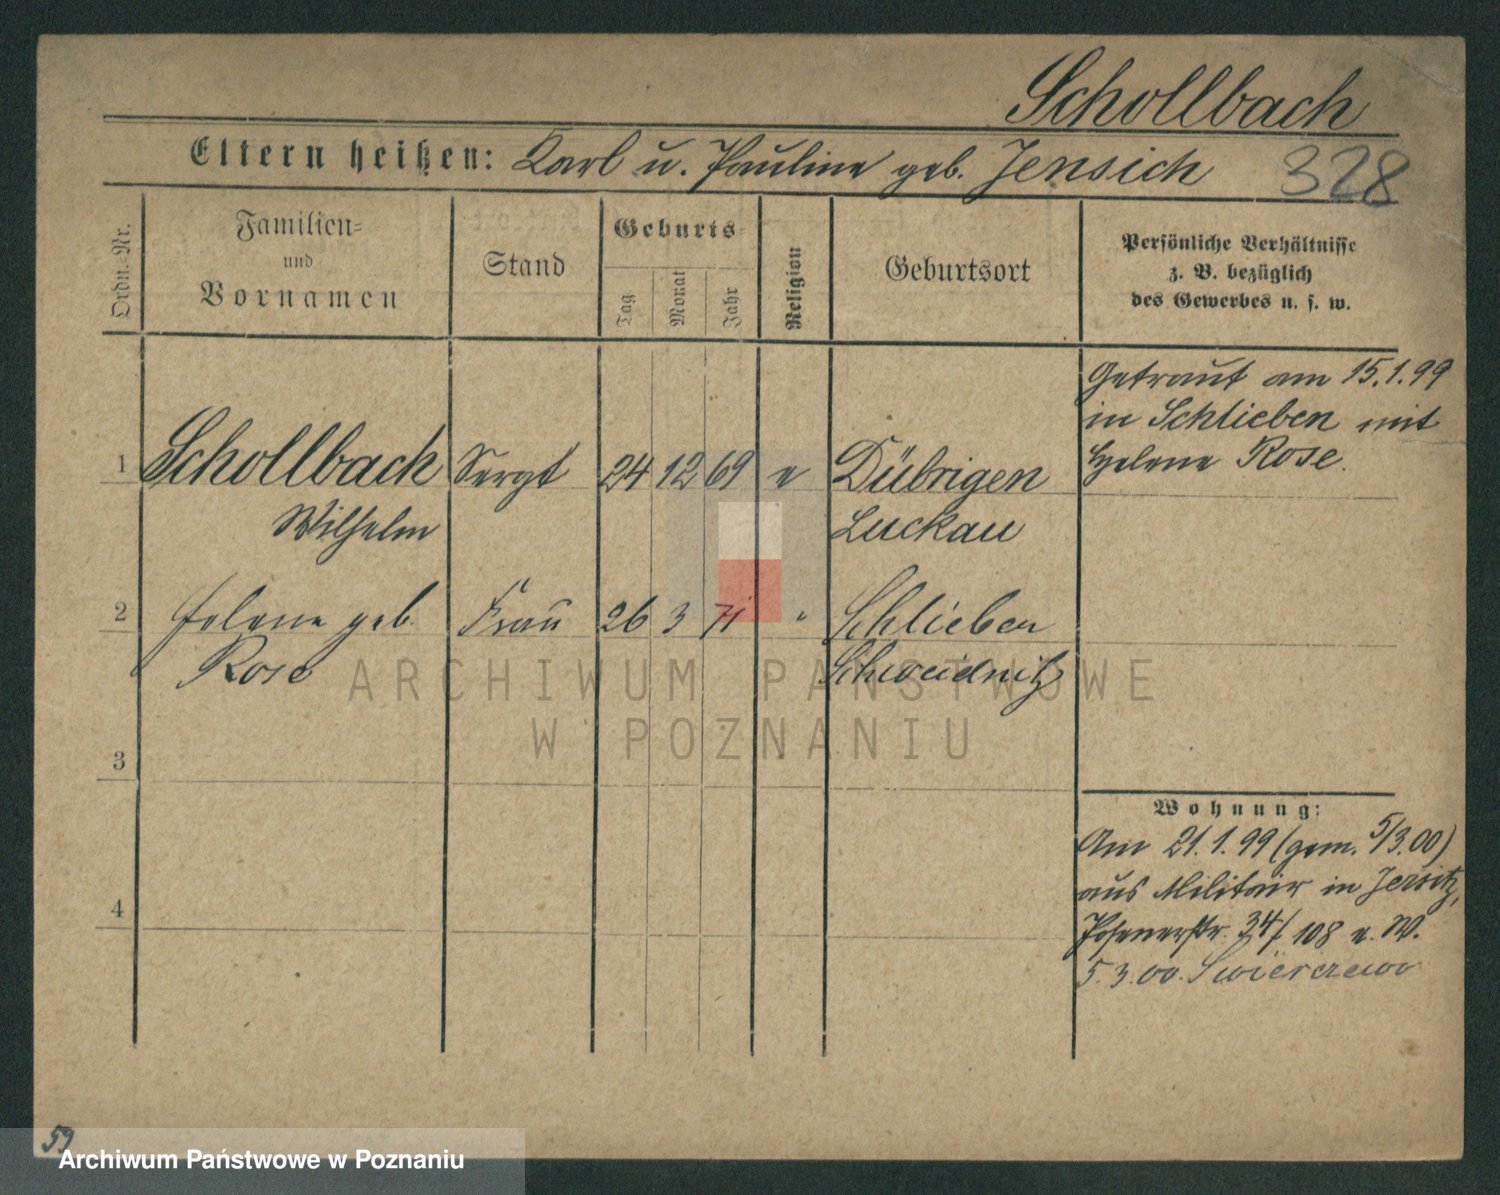 Schollbach
Eltern heißen: Karl u. Pauline geb. Jensich
328
Ordn.-Nr.
Familien-
und
Vornamen
Stand
Geburts-
Tag
Monat
Jahr
Religion
Geburtsort
Persönliche Verhältnisse
z. B. bezüglich
des Gewerbes u. s. w.
Getraut am 15.1.99
in Schlieben mit
Helene Rose.
1 Schollbach Sergt 24 12 69 e Dübrigen
Wilhelm Luckau
2 Helene geb. Frau 26 3 71 " Schlieben
Rose Schweidnitz
3
4
Wohnung:
Am 21.1.99 (gem. 5/3.00)
aus Militair in Jersitz,
Posenerstr. 34/ 108 e. W.
5.3.00. Swierczewo
59
ARCHIWUM PAŃSTWOWE
W POZNANIU
Archiwum Państwowe w Poznaniu